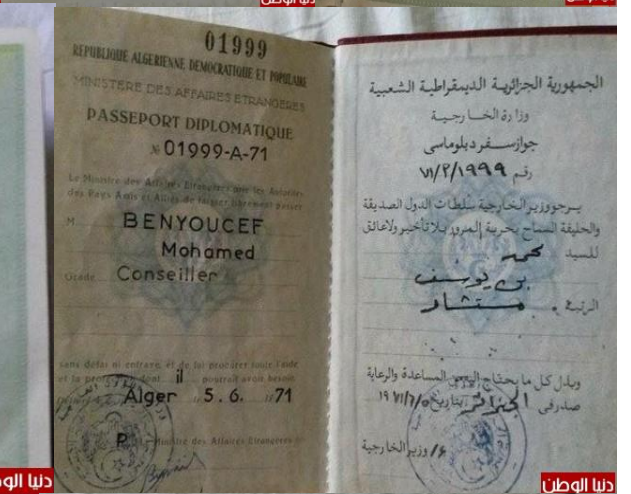 دنيا الوطن
01999
REPUBLIQUE ALGERIENNE DEMOCRATIQUE ET POPULAIRE
MINISTERE DES AFFAIRES ETRANGERES
PASSEPORT DIPLOMATIQUE
№ 01999-A-71
Le Ministre des Affaires Etrangères prie les Autorités
des Pays Amis et Alliés de laisser librement passer
M. BENYOUCEF
Mohamed
Grade Conseiller
sans délai ni entrave, et de lui procurer toute l'aide
et la protection dont il pourrait avoir besoin
Alger 5.6. 71
P. Ministre des Affaires Etrangères
الجمهورية الجزائرية الديمقراطية الشعبية
وزارة الخارجية
جواز سفر دبلوماسي
رقم ٧١/٢/١٩٩٩
يرجو وزير الخارجية سلطات الدول الصديقة
والحليفة السماح بحرية المرور بلا تأخير ولا عائق
للسيد محمد
بن يوسف
الرتبة مستشار
وبذل كل ما يحتاج المساعدة والرعاية
صدر في الجزائر بتاريخ ١٩٧١/٦/٥
ع/ وزير الخارجية
دنيا الوطن
دنيا الو